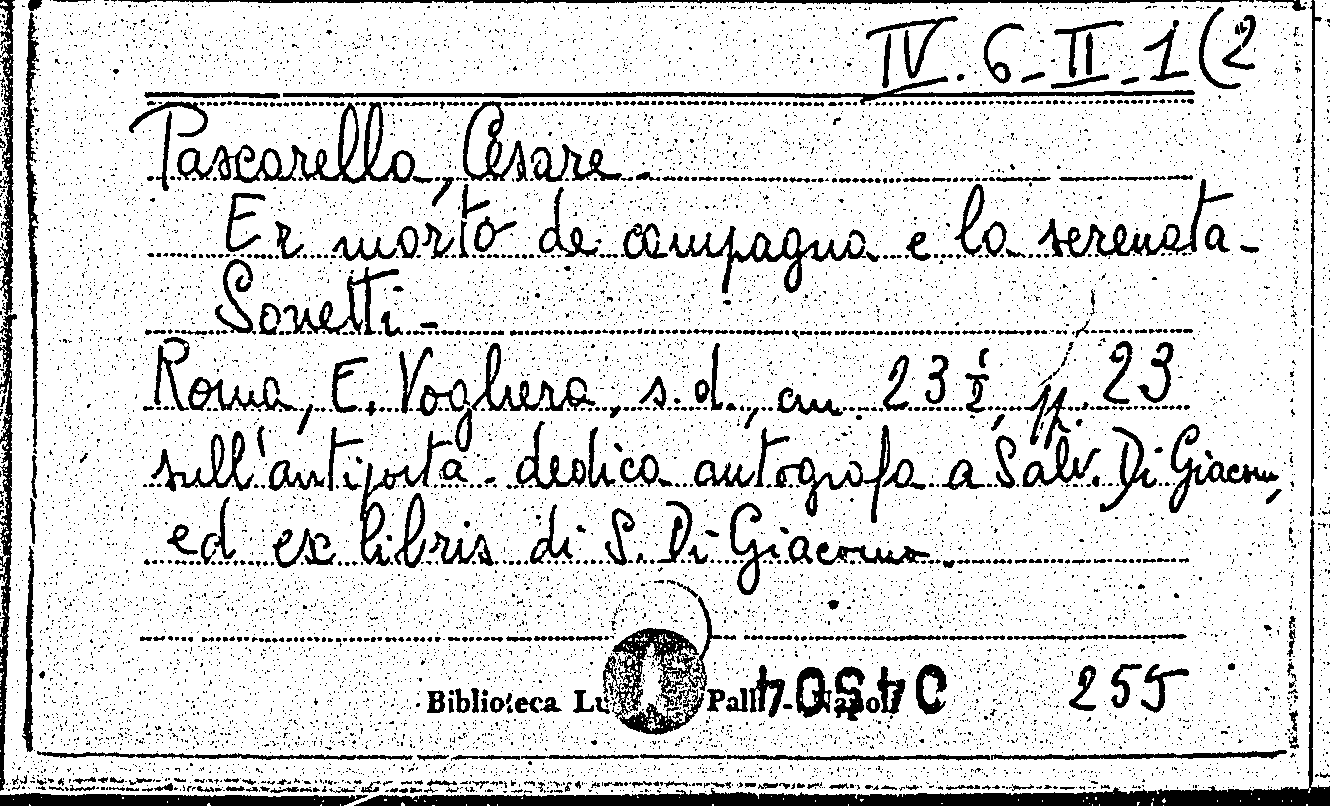 IV. 6 - II - 1 (2
Pascarella, Cesare.
Er morto de campagna e la serenata -
Sonetti -
Roma, E. Voghera, s.d., cm. 23 ½, pp. 23
sull'antiporta - dedica autografa a Salv. Di Giacomo,
ed ex libris di S. Di Giacomo.
255
Biblioteca Lu Palli - Napoli